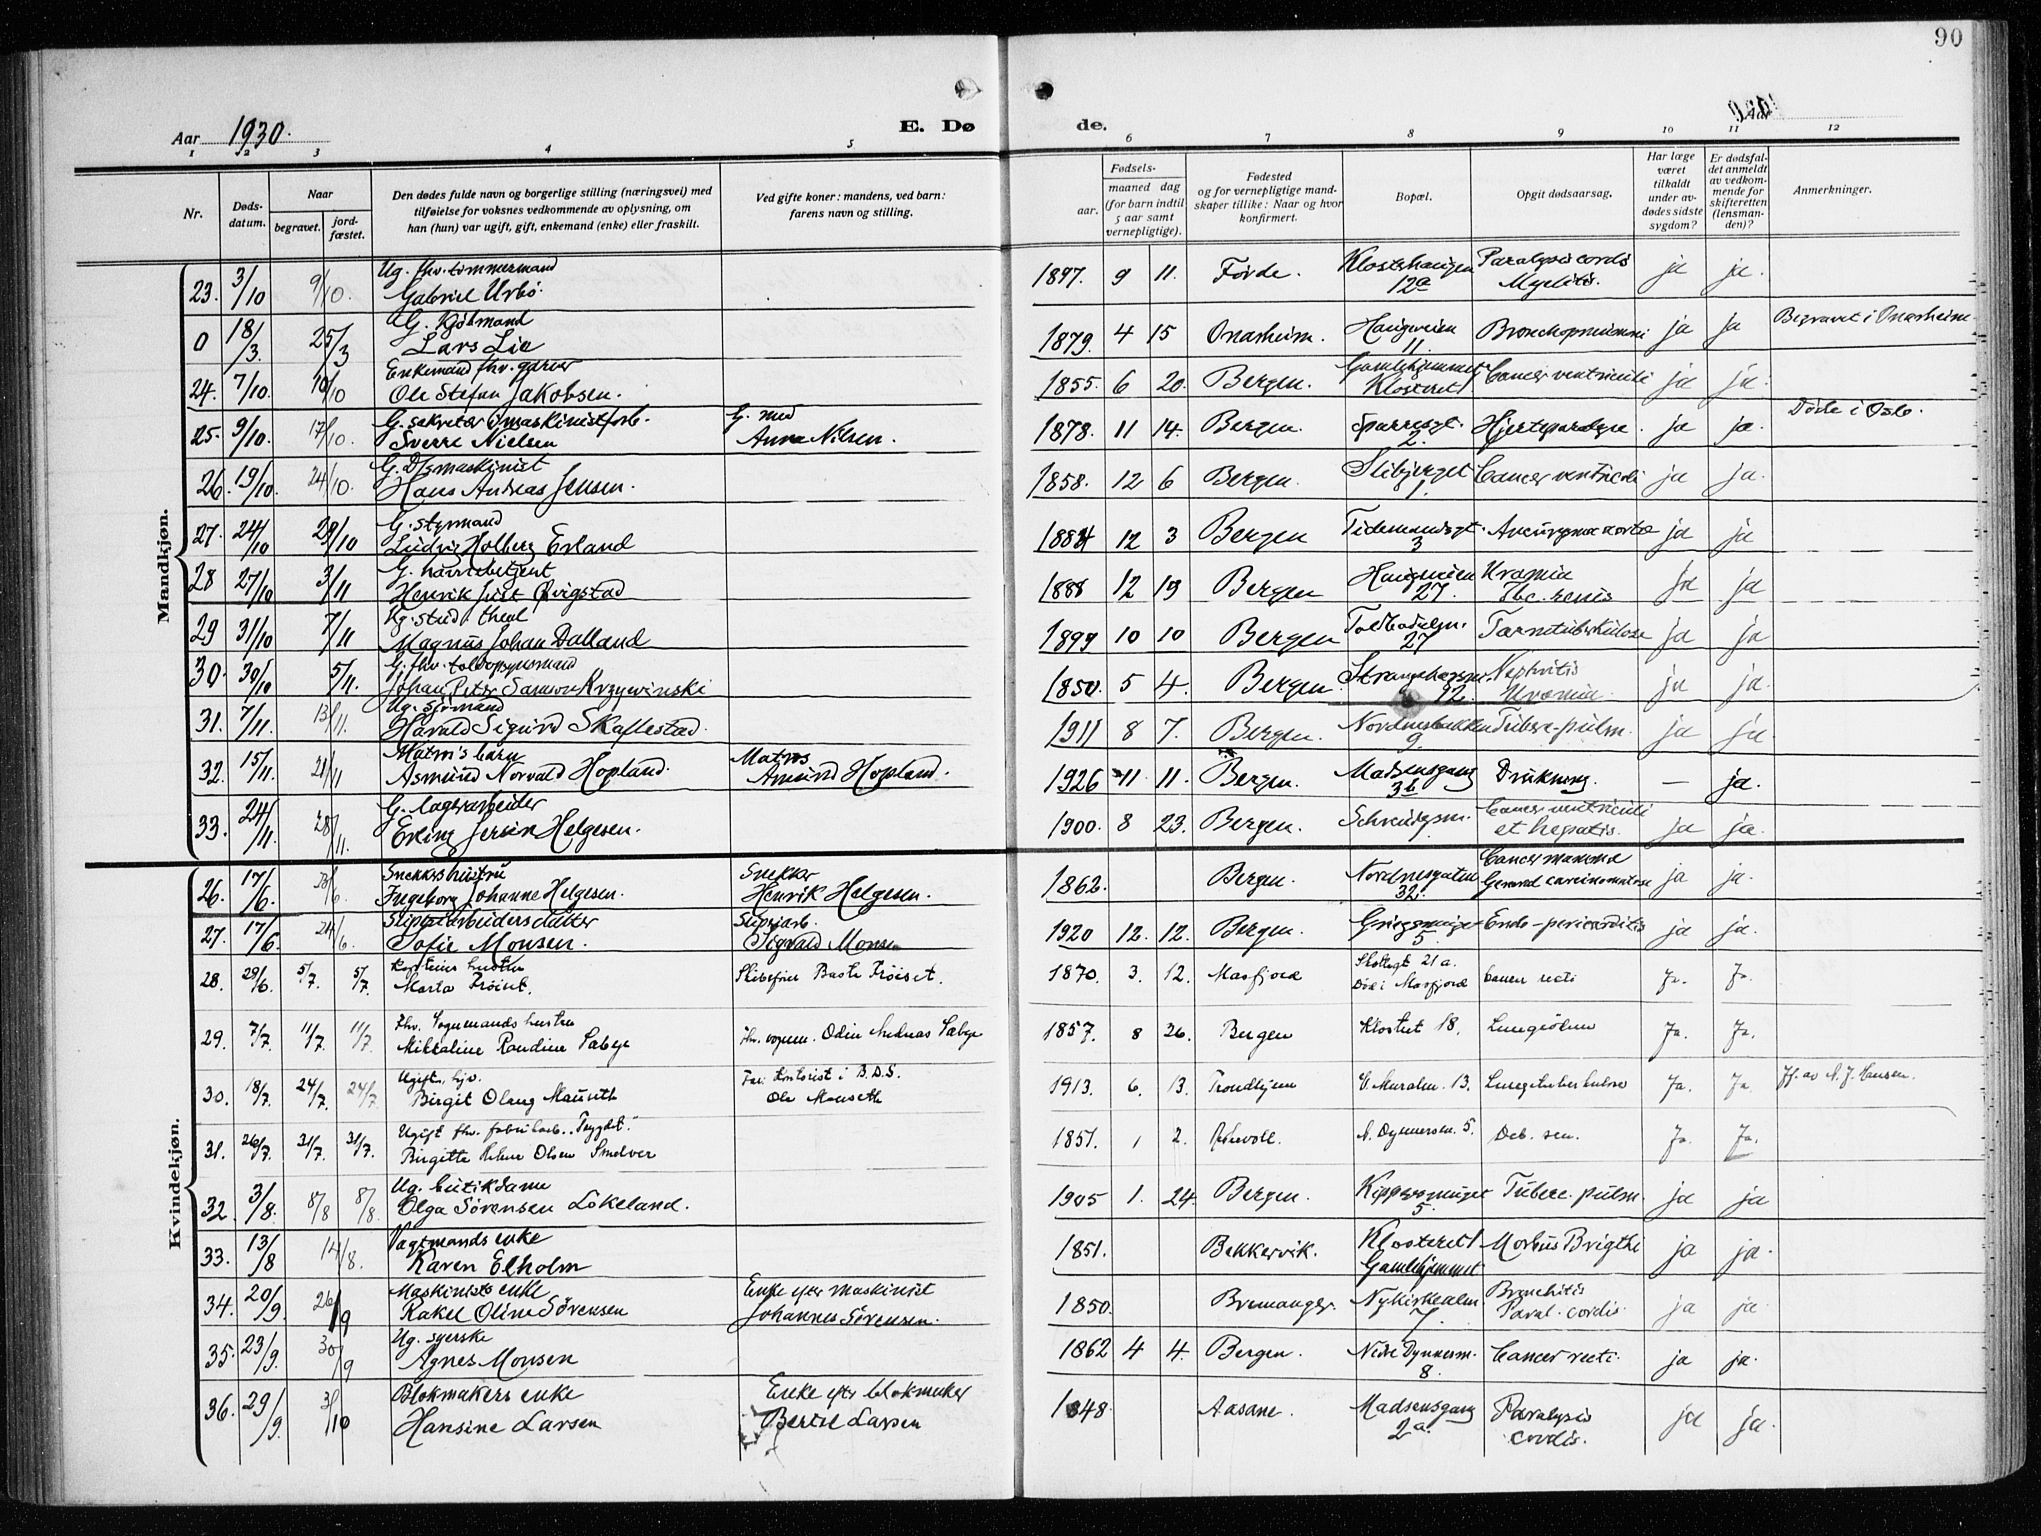 90
Aar 1930.
E. Dø
de.
1 2 3 4 5 6 7 8 9 10 11 12
Nr.
Døds-
datum.
Naar
begravet.
jord-
fæstet.
Den dødes fulde navn og borgerlige stilling (næringsvei) med
tilføielse for voksnes vedkommende av oplysning, om
han (hun) var ugift, gift, enkemand (enke) eller fraskilt.
Ved gifte koner: mandens, ved barn:
farens navn og stilling.
Fødsels-
aar.
maaned dag
(for barn indtil
5 aar samt
vernepligtige).
Fødested
og for vernepligtige mand-
skaper tillike: Naar og hvor
konfirmert.
Bopæl.
Opgit dødsaarsag.
Har læge
været
tilkaldt
under av-
dødes sidste
sygdom?
Er dødsfal-
det anmeldt
av vedkom-
mende for
skifteretten
(lensman-
den)?
Anmerkninger.
Mandkjøn.
Ug. fhv. tømmermand Klosterhaugen Paralysis cordis
23. 3/10 9/10. Gabriel Urbö. 1897. 9 11. Förde. 12a Myelitis. ja ja.
G. Kjöbmand Begravet i Onarheim
0 18/3 25/3 Lars Lie 1879. 4 15 Onarheim. Haugeveien 11. ja ja
Enkemand fhv. garver Gamlehjemmet
24. 7/10. 10/10 Ole Stefan Jakobsen. 1855. 6 20. Bergen. Klosteret Cancer ventriculi ja ja.
G. sekretær i maskinistforb. G. med Döde i Oslo.
25. 9/10. 17/10. Sverre Nielsen Anna Nilsen. 1878. 11 14. Bergen. 2. ja ja.
G. D/smaskinist
26. 19/10. 24/10. Hans Andreas Jensen. 1858. 12 6 Bergen. 1. Cancer ventriculi ja ja.
G. styrmand
27. 24/10 29/10 Ludvig Holberg Erland 1884 12 3 Bergen Tidemandsgt. 3 Aneurysma aortæ ja ja
G. havnebetjent Haugeveien Uræmia
28 27/10 3/11 Henrik Just Qvigstad 1888 12 19 Bergen 27. Tbc. renis ja ja
Ug. stud. theol
29 31/10 7/11 Magnus Johan Dalland 1899 10 10 Bergen 27 Tarmtuberkulose ja ja
G. fhv. toldopsynsmand Nephritis
30. 30/10 5/11. Johan Peter Samson Krzywinski 1850. 5 4. Bergen. 12. Uræmia. ja ja.
Ug. sjömand
31. 7/11. 13/11. Harald Sigurd Skaflestad. 1911 8 7. Bergen. Nordnesbakken 9. Tuberc. pulm. ja ja.
Matros barn Matros
32. 15/11. 21/11 Asmund Norvald Hopland. Amund Hopland. 1926 11 11. Bergen. Madsensgang 3b Drukning. — ja.
G. lagerarbeider Cancer ventriculi
33. 24/11. 28/11. Erling Jersin Helgesen. 1900. 8 23. Bergen. et hepatis. ja ja.
Kvindekjøn.
Snekkers hustru Snekker Cancer mamma
26. 17/6. Ingeborg Johanne Helgesen. Henrik Helgesen. 1862. Bergen. Nordnesgaten 32. carcinomatose ja ja.
Sliperarbeiders datter Sliperiarb.
27. 17/6. 24/6. Sofie Monsen. Sigvald Monsen 1920 12. 12. Bergen. 5. Endo-pericarditis ja ja.
hustru Slottsgt 21a.
28. 29/6. 5/7. 5/7. Marta Tröiset. Baste Tröiset. 1870. 3. 12. Masfjord Död i Masfjord Cancer recti Ja. Ja.
Fhv. Vognmands hustru
29. 7/7. 11/7. 11/7. Mikkaline Randine Sæbye Fhv. vognm. Odin Andreas Sæbye 1857. 8 26. Bergen Klostret 18. Lungeödem Ja. Ja.
Ugift, hjv. Far: Kontorist i B.D.S.
30. 18/7. 24/7. 24/7. Birgit Olaug Mauseth Ole Mauseth 1913. 6. 13. Trondhjem C. Muralm. 13. Lungetuberkulose Ja. Ja Jf. av N. J. Hansen.
Ugift fhv. fabrikarb. "Trygdet".
31. 26/7. 31/7. 31/7. Birgitte Helene Olsen Smelver 1851. 1 2. N. Dynnersm. 5. Deb. sen. Ja. Ja.
Ug. butikdame
32. 3/8. 8/8 8/8. Olga Sörensen Lökeland. 1905 1. 24. Bergen. Kippersmuget 5. Tuberc. pulm ja ja
Vagtmands enke Klosteret 1
33. 13/8 14/8. Karen Elholm 1851. Bekkervik. Gamlehjemmet Morbus Brigthi ja ja.
Maskinists enke Enke efter maskinist Bronchitis
34. 20/9. 26/9 Rakel Oline Sörensen Johannes Sörensen. 1850. Bremanger. Nykirkealm 7. Paral. cordis. ja ja.
Ug. syerske
35. 23/9. 30/9 Agnes Monsen 1862 4 4. Bergen. Nedre Dynnersm. 8. Cancer recti. ja ja.
Blokmakers enke Enke efter blokmaker
36. 29/9. 3/10 Hansine Larsen Bertil Larsen 1848. Aasane. Madsensgang 2a. Paralysis cordis. ja ja.